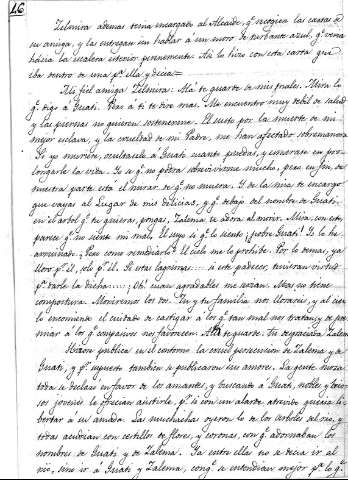 16
Zelmira ademas tenia encargado al Alcaide, q.e recogiera las cartas de
su amiga, y las entregara sin hablar á un moro de turbante azul, q.e venia
hácia la escalera esterior perennemente. Asi lo hizo con esta carta que
iba dentro de una p. ella y decia =
Mi fiel amiga Zelmira: Alá te guarde de mis males. Mira lo
q.e digo á Guati. Pero á ti te diré mas. Me encuentro muy debil de salud
y las piernas no quieren sostenerme. El susto por la muerte de mi
mejor esclava, y la crueldad de mi Padre, me han afectado sobremanera.
Si yo muriere, ocultaselo á Guati cuanto puedas, y esmerate en pro-
longarle la vida. Yo se q.e no podrá sobrevivirme mucho, pero en fin, de
nuestra parte esta el mirar de q.e no muera. Y de la mia te encargo
que vayas al Lugar de mis delicias, y q.e debajo del nombre de Guati
en el arbol q.e tu quieras, pongas, Zalema te adora al morir. Mira, con esto
parece q.e no siento mi mal. El suyo si q.e lo siento ¡pobre Guati! Yo le he
arruinado. ¿Pero como remediarlo? El cielo me lo prohibe. Por lo demas, ya
lloro p.r él, solo p.r él. Si estas lagrimas.... a este padecer, tuvieran virtud
p.a darle la dicha.....; Oh! cuan agradables me serian. Mas no tiene
compostura. Moriremos los dos. Tu y tu familia nos llorareis, y al cielo
le encomiendo el cuidado de castigar a los q.e tan mal nos tratan, y de pre-
miar á los q.e compasivos nos favorecen. Alá te guarde. Tu desgraciada Zalema
Hízose publica en el contorno la cruel persecucion de Zalema y a
Guati, y p.r supuesto tambien se publicaron sus amores. La gente moza
toda se declaró en favor de los amantes, y buscando á Guati, nobles y brio-
sos jovenes le ofrecian asistirle, p.r si con un alarde atrevido queria li-
bertar á su amada. Las muchachas oyeron lo de los arboles del rio, y
todas acudian con cestillos de flores, y coronas, con q.e adornaban los
nombres de Guati y de Zalema. Ya entre ellas no se decia ir al
rio, sino ir á Guati y Zalema, conq.e se entendian mejor p.a lo q.e